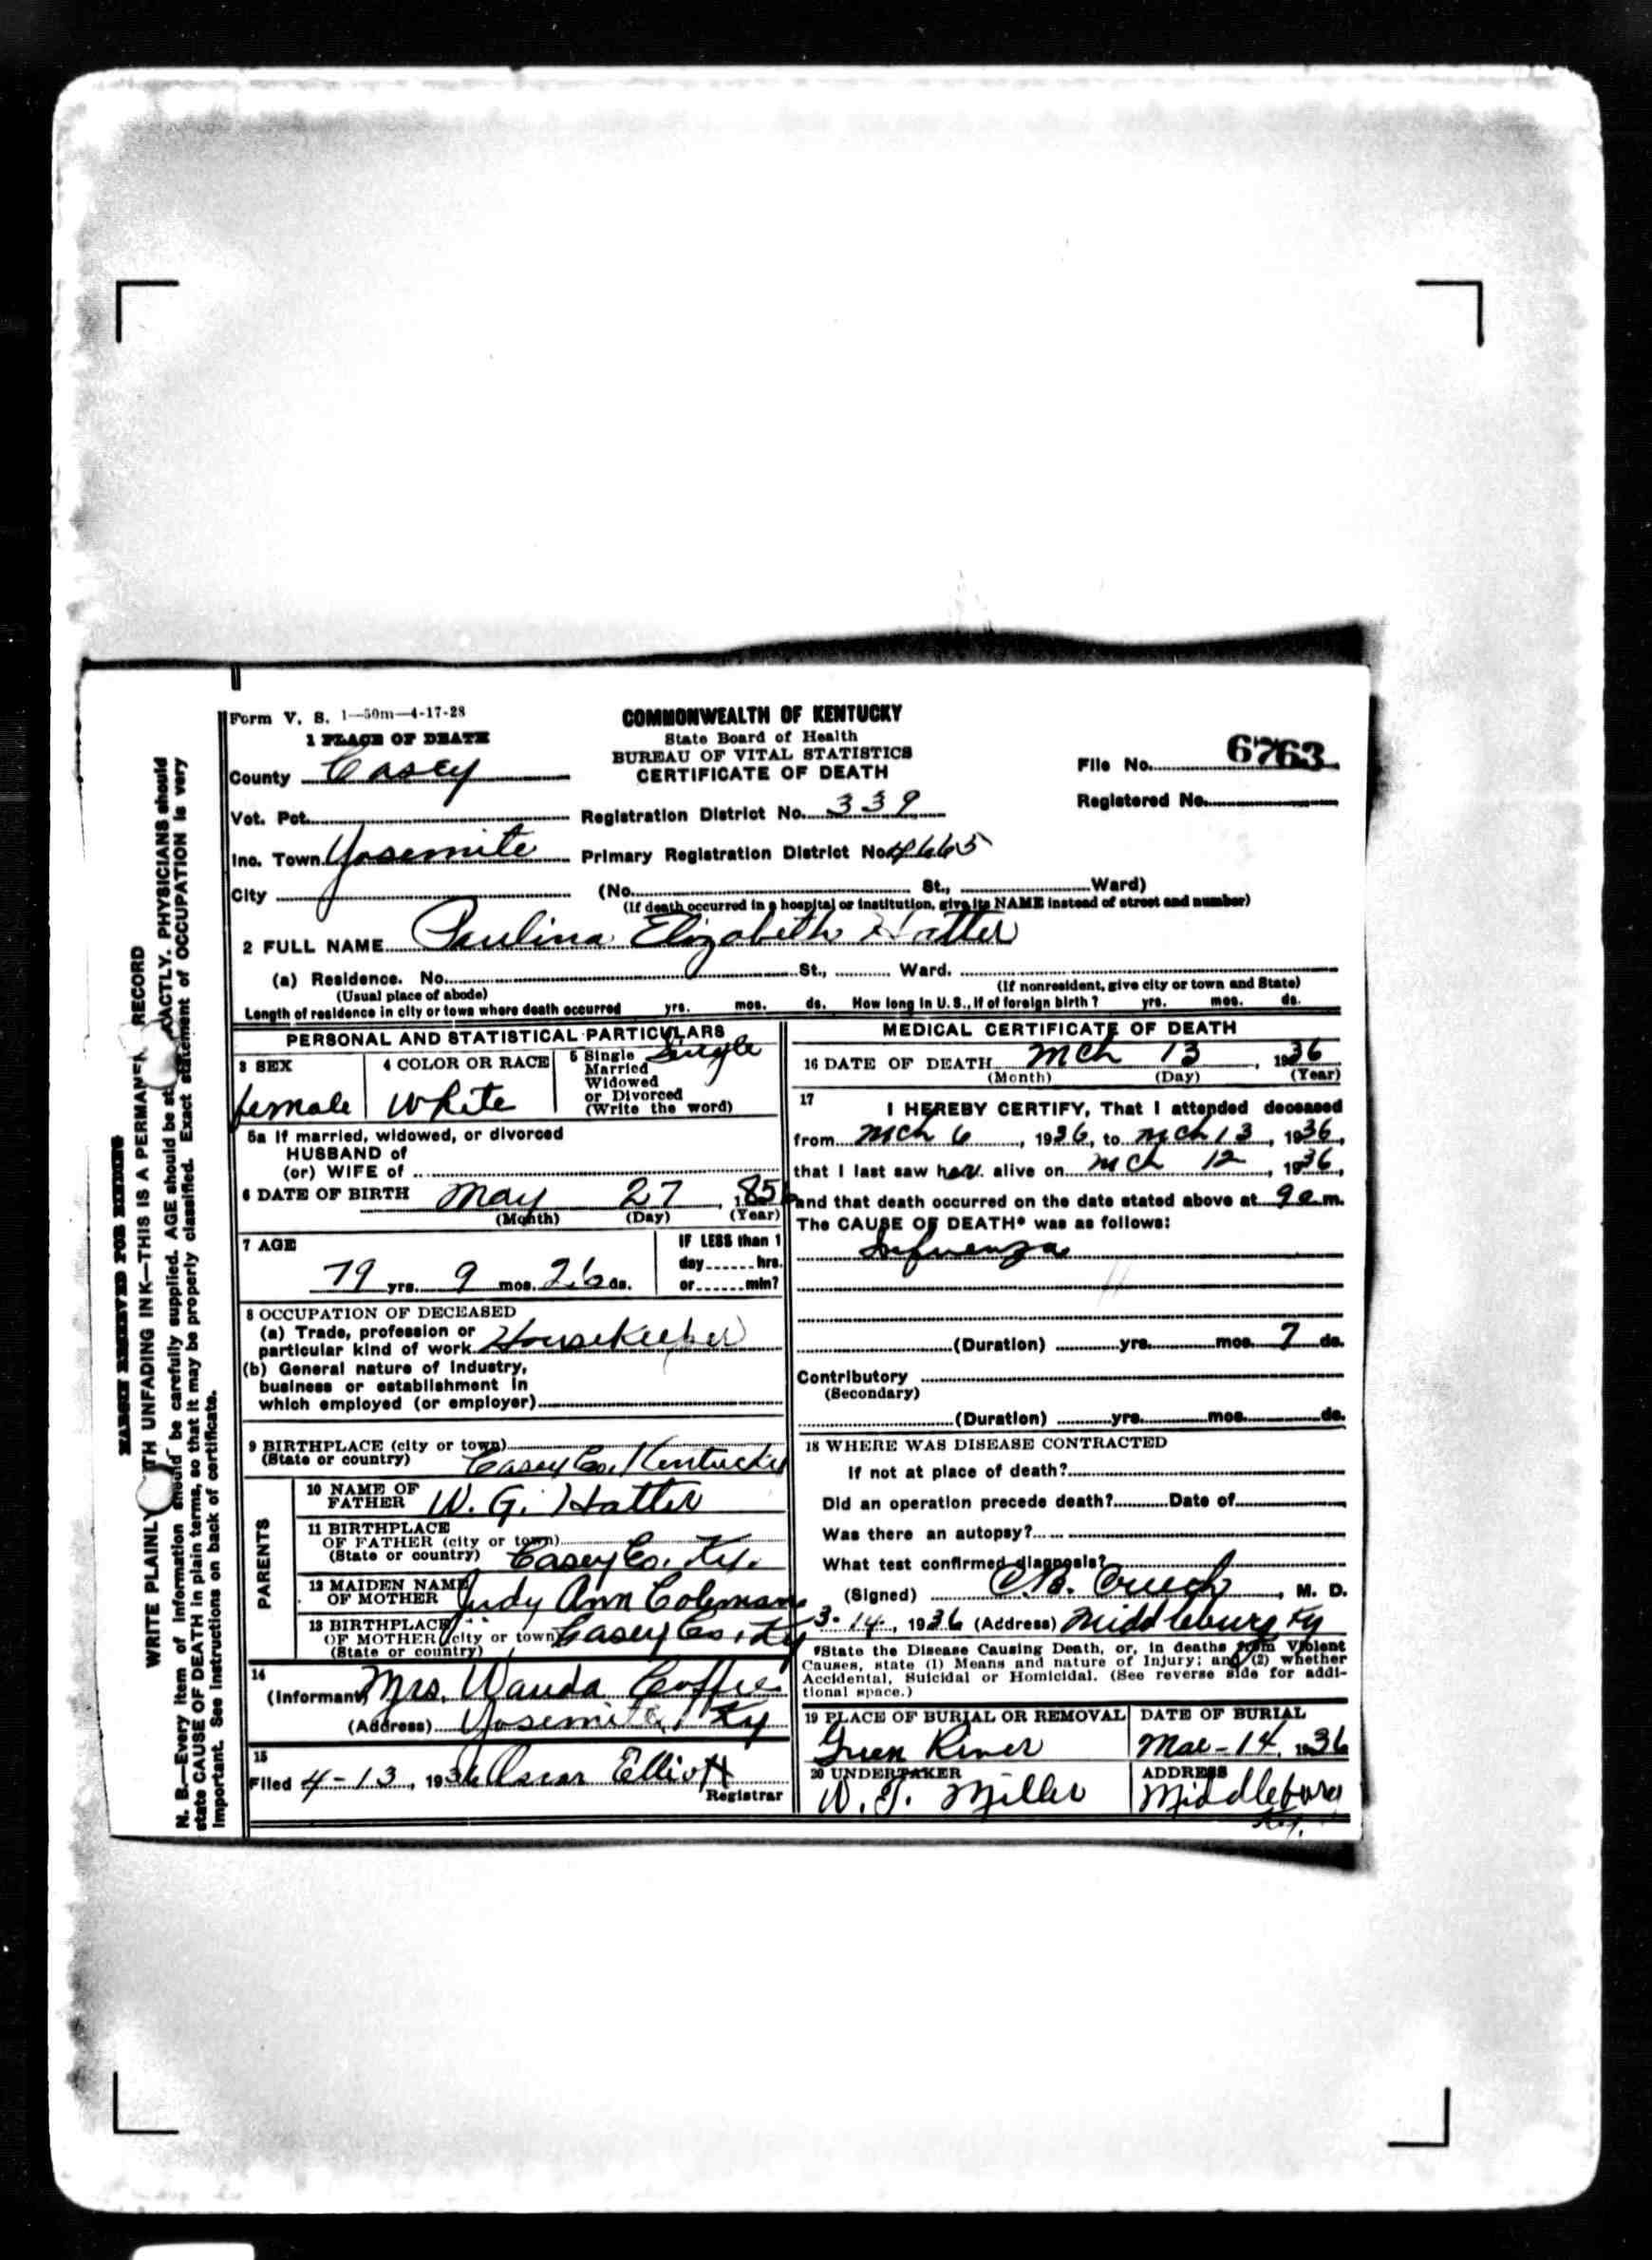 Form V. S. 1—50m—4-17-28
COMMONWEALTH OF KENTUCKY
State Board of Health
BUREAU OF VITAL STATISTICS
CERTIFICATE OF DEATH
File No. 6763
Registered No.
1 PLACE OF DEATH
County Casey
Vot. Pct. Registration District No. 339
Inc. Town Yosemite Primary Registration District No. 4665
City (No. St., Ward)
(If death occurred in a hospital or institution, give its NAME instead of street and number)
2 FULL NAME Paulina Elizabeth Hatter
(a) Residence. No. St., Ward.
(Usual place of abode) (If nonresident, give city or town and State)
Length of residence in city or town where death occurred yrs. mos. ds. How long in U. S., if of foreign birth? yrs. mos. ds.
PERSONAL AND STATISTICAL PARTICULARS
3 SEX
female
4 COLOR OR RACE
White
5 Single Single
Married
Widowed
or Divorced
(Write the word)
5a If married, widowed, or divorced
HUSBAND of
(or) WIFE of
6 DATE OF BIRTH May 27, 185
(Month) (Day) (Year)
7 AGE
79 yrs. 9 mos. 26 ds.
IF LESS than 1
day hrs.
or min?
8 OCCUPATION OF DECEASED
(a) Trade, profession or
particular kind of work Housekeeper
(b) General nature of Industry,
business or establishment in
which employed (or employer)
9 BIRTHPLACE (city or town)
(State or country) Casey Co. Kentucky
PARENTS
10 NAME OF
FATHER W. G. Hatter
11 BIRTHPLACE
OF FATHER (city or town)
(State or country) Casey Co. Ky.
12 MAIDEN NAME
OF MOTHER Judy Ann Coleman
13 BIRTHPLACE
OF MOTHER (city or town) Casey Co, Ky
(State or country)
14
(Informant) Mrs. Wanda Coffee
(Address) Yosemite, Ky
15
Filed 4-13, 1936 Oscar Elliott
Registrar
MEDICAL CERTIFICATE OF DEATH
16 DATE OF DEATH Mch 13, 1936
(Month) (Day) (Year)
17
I HEREBY CERTIFY, That I attended deceased
from Mch 6, 1936, to Mch 13, 1936,
that I last saw her alive on Mch 12, 1936,
and that death occurred on the date stated above at 9 a.m.
The CAUSE OF DEATH* was as follows:
Influenza
(Duration) yrs. mos. 7 ds.
Contributory
(Secondary)
(Duration) yrs. mos. ds.
18 WHERE WAS DISEASE CONTRACTED
If not at place of death?
Did an operation precede death? Date of
Was there an autopsy?
What test confirmed diagnosis?
(Signed) C. B. Creech, M. D.
3-14, 1936 (Address) Middleburg Ky
*State the Disease Causing Death, or, in deaths from Violent
Causes, state (1) Means and nature of Injury; and (2) whether
Accidental, Suicidal or Homicidal. (See reverse side for addi-
tional space.)
19 PLACE OF BURIAL OR REMOVAL
Green River
DATE OF BURIAL
Mar-14, 1936
20 UNDERTAKER
W. T. Miller
ADDRESS
Middleburg
Ky.
MARGIN RESERVED FOR BINDING
WRITE PLAINLY WITH UNFADING INK—THIS IS A PERMANENT RECORD
N. B.—Every item of information should be carefully supplied. AGE should be stated EXACTLY. PHYSICIANS should
state CAUSE OF DEATH in plain terms, so that it may be properly classified. Exact statement of OCCUPATION is very
important. See instructions on back of certificate.